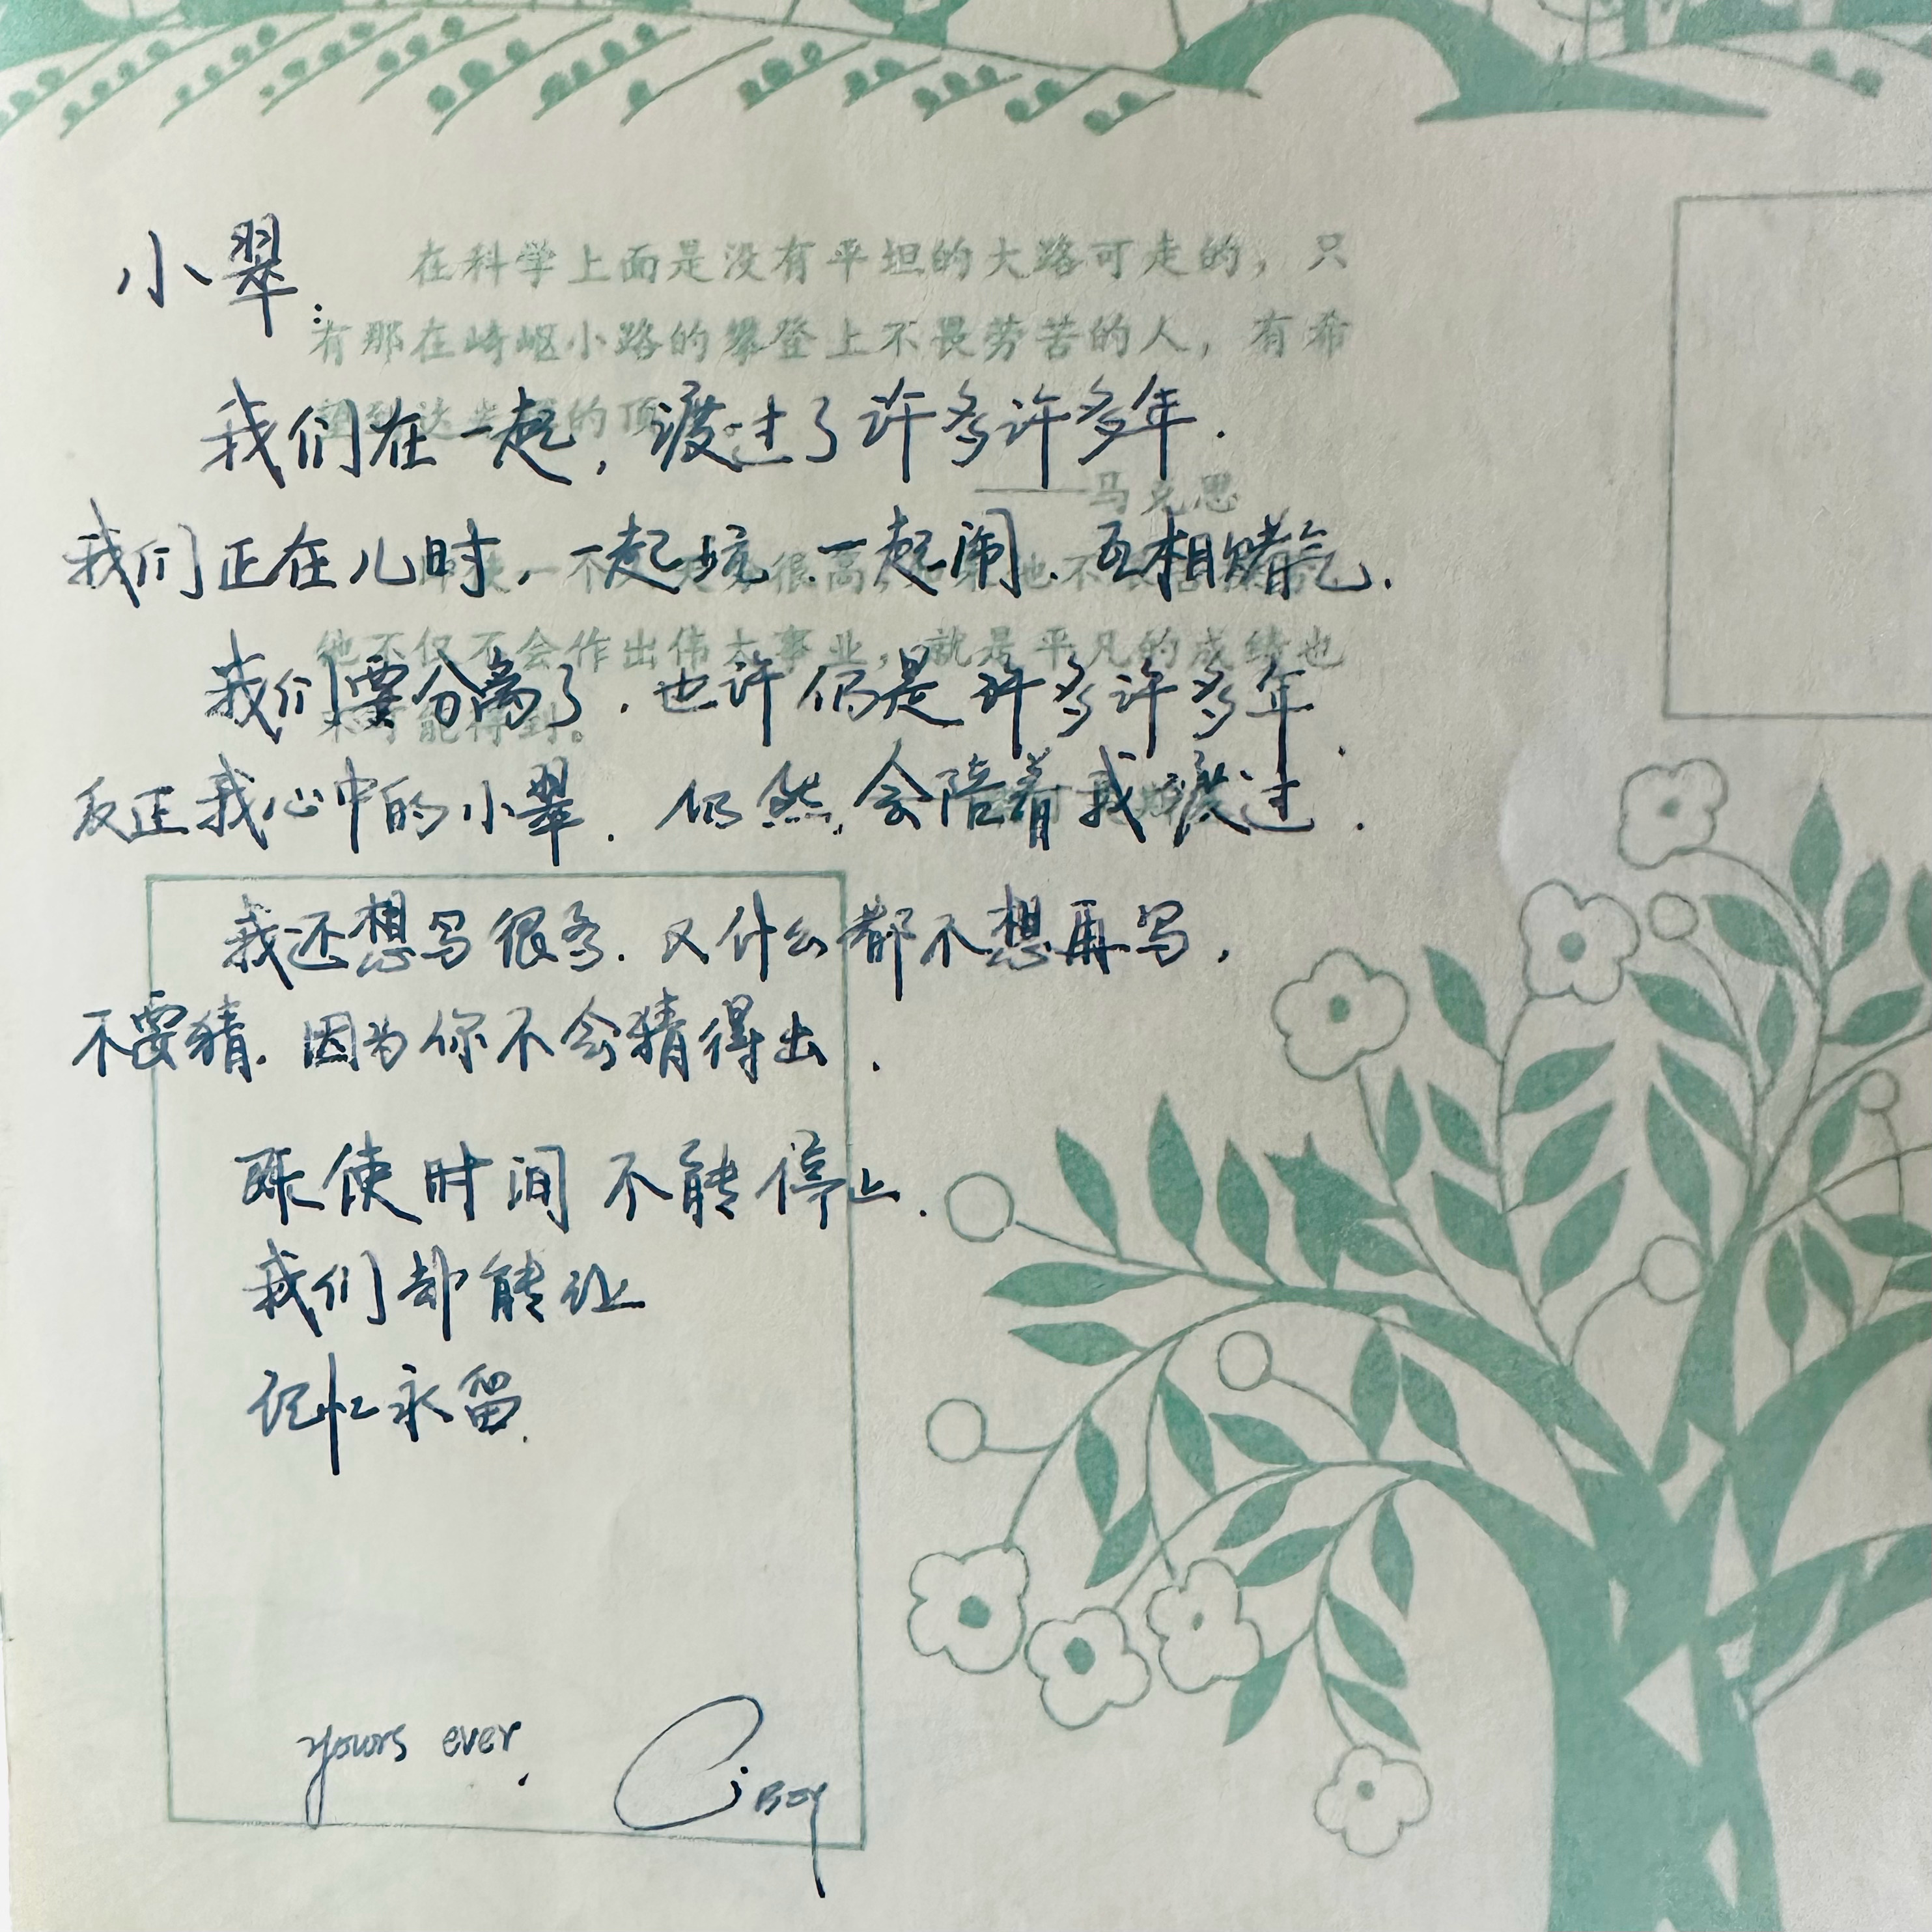 小翠:
在科学上面是没有平坦的大路可走的，只
有那在崎岖小路的攀登上不畏劳苦的人，有希
望到达光辉的顶
我们在一起, 渡过了许多许多年.
——马克思
我们正在儿时, 一起坑. 一起闹. 互相赌气.
他不仅不会作出伟大事业，就是平凡的成绩也
我们要分离了. 也许仍是许多许多年.
不可能得到。
反正我心中的小翠. 仍然会陪着我渡过.
我还想写很多. 又什么都不想再写.
不要猜. 因为你不会猜得出.
既使时间不能停止.
我们却能让
记忆永留.
yours ever,